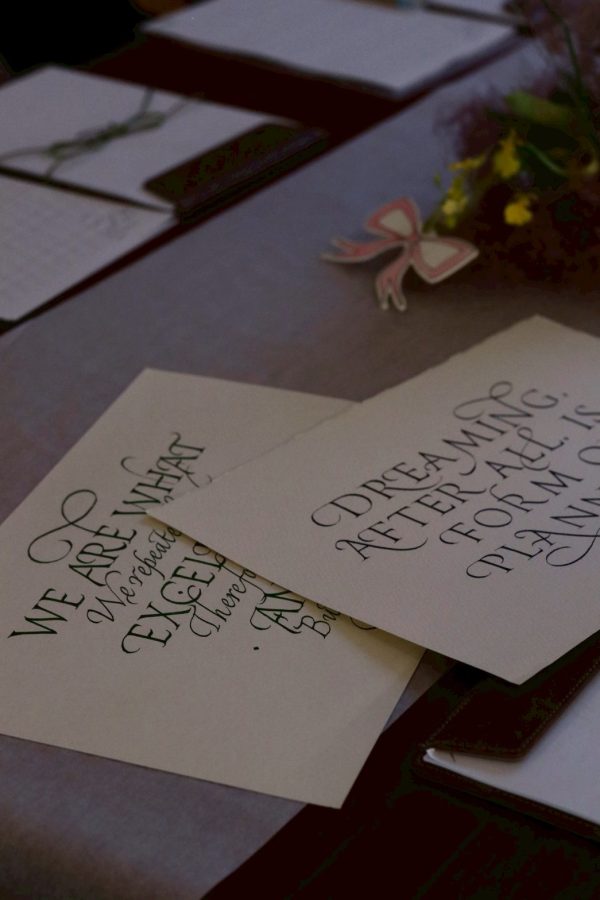 WE ARE WHAT
We repeate
EXCEL
Therefo
AN
Bu
DREAMING,
AFTER ALL, IS
FORM O
PLANN